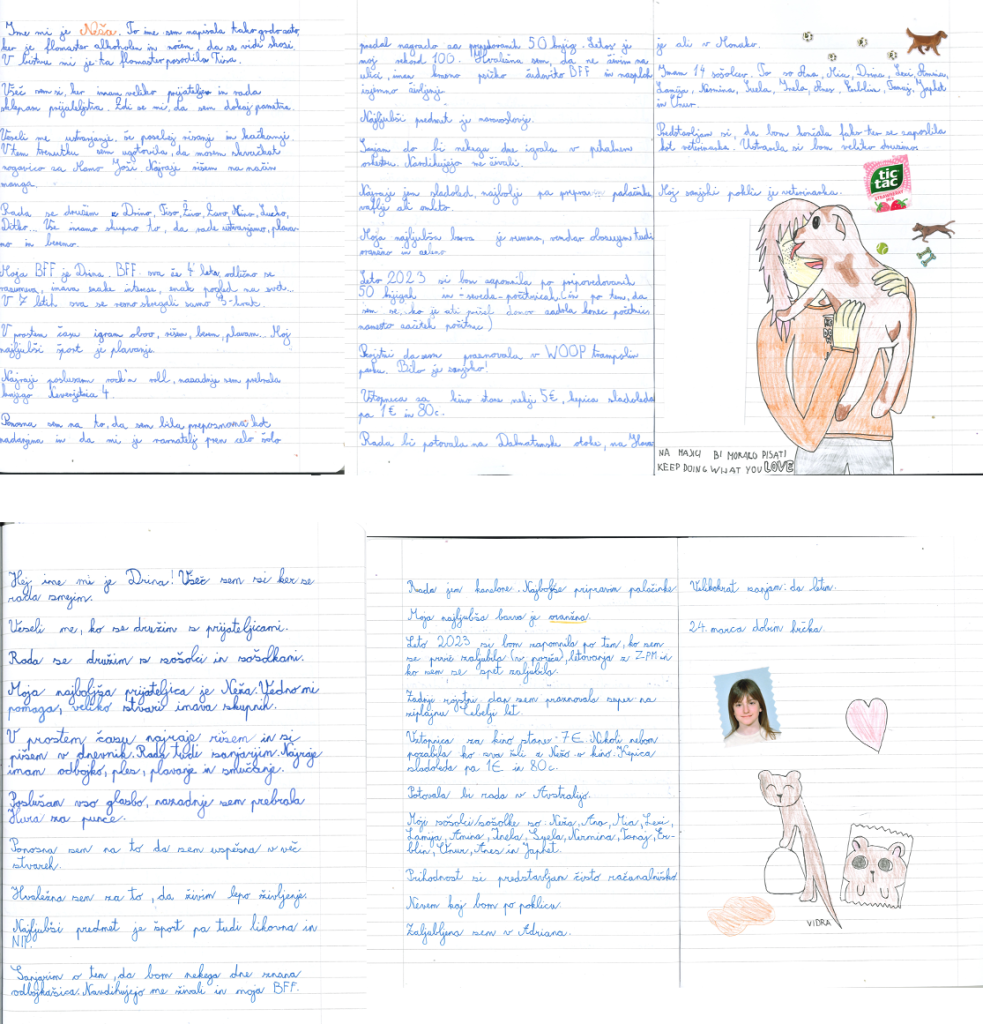 Ime mi je Neža. To ime sem napisala tako grdo zato,
ker je flomaster alkoholen in nočem, da se vidi skozi.
V bistvu mi je ta flomaster posodila Tisa.
Všeč sem si, ker imam veliko prijateljev in rada
sklepam prijateljstva. Zdi se mi, da sem dokaj pametna.
Veseli me ustvarjanje, še posebej risanje in kvačkanje.
V tem trenutku sem ugotovila, da moram skvačkat
nogavico za Jaši. Najraje rišem na način
manga.
Rada se družim z Drino, Tiso, Živo, Zaro,
Ditko... Vse imamo skupno to, da rade ustvarjamo, plava-
mo in beremo.
Moja BFF je Drina. BFF sva že 4 leta, odlično se
razumeva, imava enake interese, enak pogled na svet...
V 7 letih sva se resno skregali samo 3-krat.
V prostem času igram oboo, rišem, berem, plavam... Moj
najljubši šport je plavanje.
Najraje poslušam rock'n roll, nazadnje sem prebrala
knjigo Neverjetnica 4.
Ponosna sem na to, da sem bila prepoznana kot
nadarjena in da mi je ravnatelj pred celo šolo
predal nagrado za prebranih 50 knjig. Letos je
moj rekord 100. Hvaležna sem, da ne živim na
ulici, imam krasno psičko čudovito BFF in nasploh
izjemno življenje.
Najljubši predmet je naravoslovje.
Sanjam da bi nekega dne igrala v pihalnem
orkestru. Navdihujejo me živali.
Najraje jem sladoled, najbolje pa pripravim palačinke
vaflje ali omleto.
Moja najljubša barva je rumena, vendar obožujem tudi
oranžno in zeleno.
Leto 2023 si bom zapomnila po prepovedanih
50 knjigah in - seveda - počitnicah (in po tem, da
sem se, ko je ati prišel domov zavedla konec počitnic
namesto začetek počitnic!)
Rojstni dan sem praznovala v WOOP trampolin
parku. Bilo je sanjsko!
Vstopnica za kino stane nekje 5€, kepica sladoleda
pa 1€ in 80c.
Rada bi potovala na Dalmatinske otoke, na Havaje
je ali v Monako.
Imam 14 sošolcev. To so Ana, Mia, Drina, Lexi, Amina,
Lamija, Nermina, Sejla, Inela, Anes, Erblin, Tanaj, Japhet
in Unur.
Predstavljam si, da bom končala faks ter se zaposlila
kot veterinarka. Ustvarila si bom veliko družino.
Moj sanjski poklic je veterinarka.
tic
tac
STRAWBERRY
MIX
NA MAJICI BI MORALO PISATI
KEEP DOING WHAT YOU LOVE
Hej, ime mi je Drina! Všeč sem si ker se
rada smejim.
Veseli me, ko se družim s prijateljicami.
Rada se družim z sošolci in sošolkami.
Moja najboljša prijateljica je Neža. Vedno mi
pomaga, veliko stvari imava skupnih.
V prostem času najraje rišem in si
pišem v dnevnik. Rada tudi sanjarim. Najraje
imam odbojko, ples, plavanje in smučanje.
Poslušam vso glasbo, nazadnje sem prebrala
Hura za punce.
Ponosna sem na to da sem uspešna v več
stvareh.
Hvaležna sem za to, da živim lepo življenje.
Najljubši predmet je šport pa tudi likovna in
NIP.
Sanjarim o tem, da bom nekega dne znana
odbojkašica. Navdihujejo me živali in moja BFF.
Rada jem kanelone. Najboljše pripravim palačinke.
Moja najljubša barva je oranžna.
Leto 2023 si bom zapomnila po tem, ko sem
se prvič zaljubila (v poziča), letovanja z ZPM in
ko sem se spet zaljubila.
Zadnji rojstni dan sem praznovala super na
ziplajnu Čebelji let.
Vstopnica za kino stane 7€. Nikoli nebom
pozabla ko sva šli z Nežo v kino. Kepica
sladoleda pa 1€ in 80c.
Potovala bi rada v Avstralijo.
Moji sošolci/sošolke so: Neža, Ana, Mia, Lexi,
Lamija, Amina, Inela, Sejla, Nermina, Tanaj, Er-
blin, Unur, Anes in Japhet.
Prihodnost si predstavljam čisto računalniško.
Nevem kaj bom po poklicu.
Zaljubljena sem v Adriana.
Velikokrat sanjam: da letim.
24. marca dobim hrčka.
VIDRA